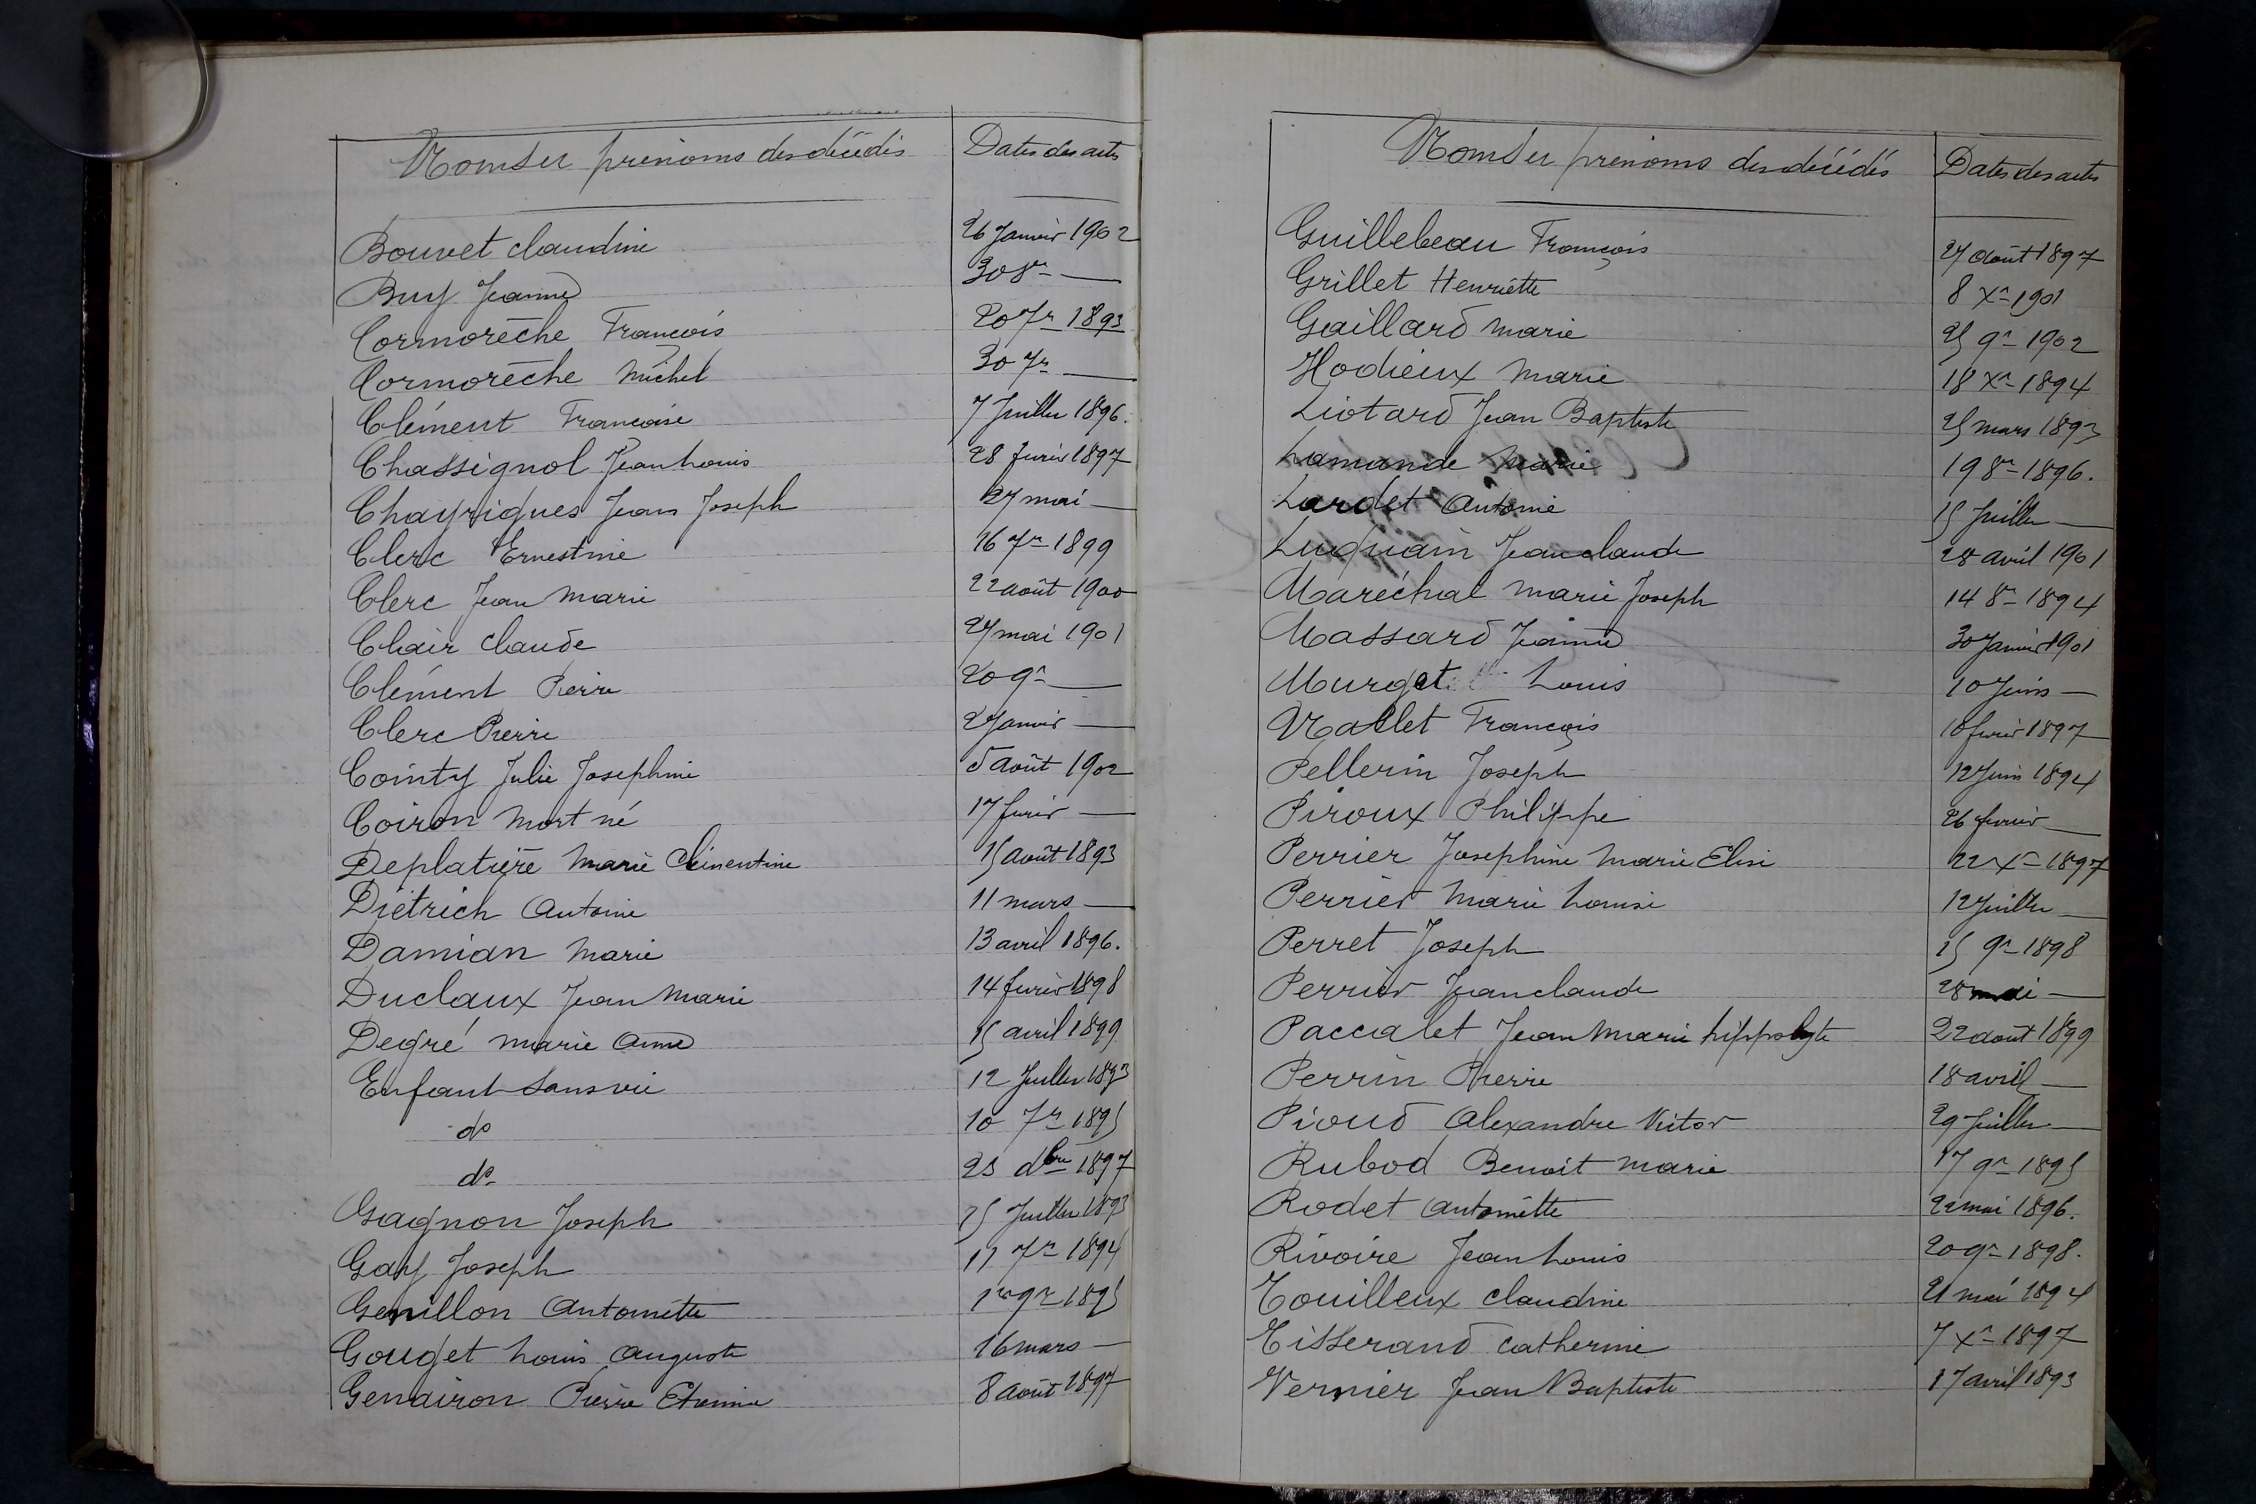 Noms et prénoms des décédés Dates des actes
Bouvet claudine 26 Janvier 1902
Buy Jeanne 30 8re —
Cormorèche François 20 7re 1893
Cormorèche Michel 30 7re —
Clément Françoise 7 Juillet 1896.
Chassignol Jean Louis 28 février 1897
Chayrigues Jean Joseph 27 mai —
Clerc Ernestine 16 7re 1899
Clerc Jean Marie 22 août 1900
Clair claude 27 mai 1901
Clément Pierre 20 9re —
Clerc Pierre 2 Janvier —
Cointy Julie Josephine 5 août 1902
Coiron Mort né 17 février —
Deplatière Marie Clémentine 15 août 1893
Diétrich Antoine 11 mars —
Damian Marie 13 avril 1896.
Duclaux Jean Marie 14 février 1898
Degré Marie Anne 15 avril 1899
Enfant Sans vie 12 Juillet 1893
do 10 7re 1895
do 25 dbre 1897
Gagnon Joseph 25 Juillet 1893
Gay Joseph 17 7re 1894
Genillon Antoinette 1er 9re 1895
Gouget Louis Auguste 16 mars —
Genairon Pierre Etienne 8 août 1897
Noms et prénoms des décédés Dates des actes
Guillebeau François 27 août 1897
Grillet Henriette 8 Xre 1901
Gaillard Marie 25 9re 1902
Hodieux Marie 18 Xre 1894
Liotard Jean Baptiste 25 mars 1893
Lamande Marie 19 8re 1896.
Lardet Antoine 15 Juillet —
Luquain Jean claude 28 avril 1901
Maréchal Marie Joseph 14 8re 1894
Massard Jeanne 30 Janvier 1901
Murgat Louis 10 Juin —
Nallet François 18 février 1897
Pellerin Joseph 12 Juin 1894
Piroux Philippe 26 février —
Perrier Josephine Marie Elise 22 Xre 1897
Perrier Marie Louise 12 Juillet —
Perret Joseph 15 9re 1898
Perrier Jean claude 28 mai —
Paccalet Jean Marie hippolyte 22 août 1899
Perrin Pierre 18 avril —
Pioud Alexandre Victor 29 Juillet —
Rubod Benoit Marie 17 9re 1895
Rodet Antoinette 22 mai 1896.
Rivoire Jean Louis 20 9re 1898.
Touilleux claudine 21 mai 1894
Tisserand Catherine 7 Xre 1897
Vernier Jean Baptiste 17 avril 1893